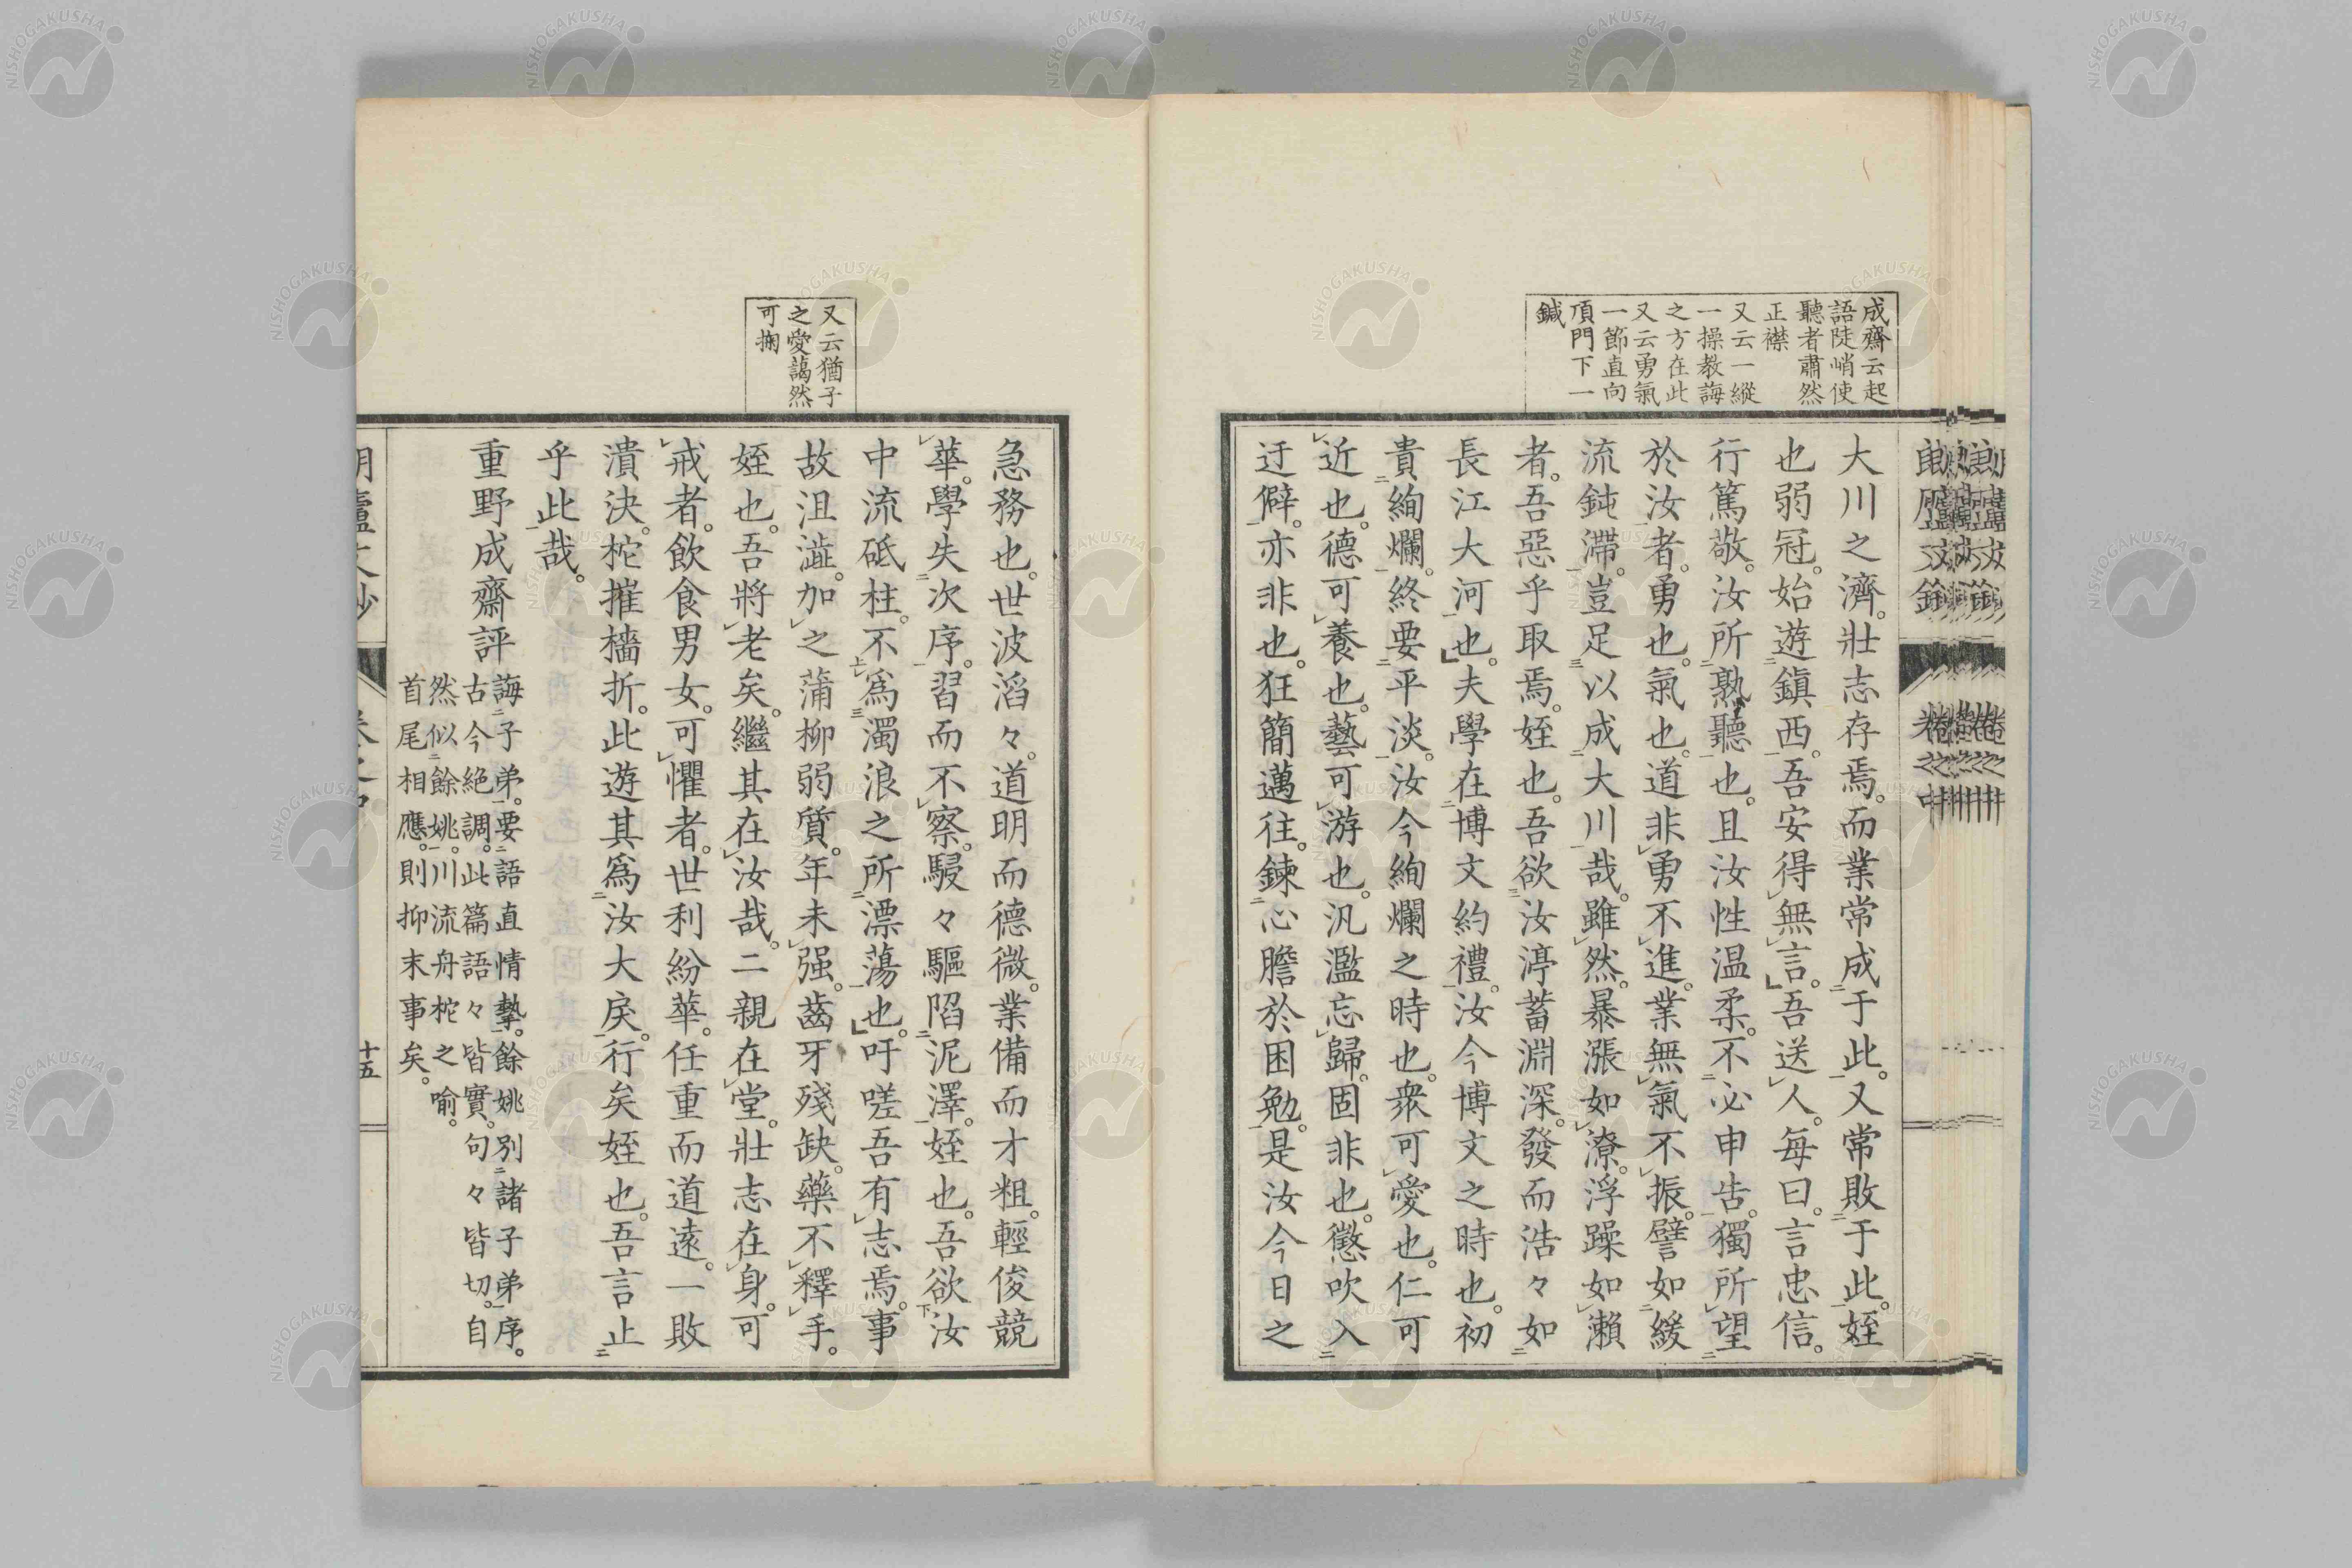 成齋云起
語陡峭使
聽者肅然
正襟
又云一縱
一操教誨
之方在此
又云勇氣
一節直向
頂門下一
鍼
大川之濟。壯志存焉。而業常成于此。又常敗于此。姪
也弱冠。始遊鎮西。吾安得無言。吾送人。每曰。言忠信。
行篤敬。汝所熟聽也。且汝性温柔。不必申告。獨所望
於汝者。勇也。氣也。道非勇不進。業無氣不振。譬如緩
流鈍滯。豈足以成大川哉。雖然。暴漲如潦。浮躁如瀨
者。吾惡乎取焉。姪也。吾欲汝渟蓄淵深。發而浩々如
長江大河也。夫學在博文約禮。汝今博文之時也。初
貴絢爛。終要平淡。汝今絢爛之時也。衆可愛也。仁可
近也。德可養也。藝可游也。汎濫忘歸。固非也。懲吹入
迂僻。亦非也。狂簡邁往。鍊心膽於困勉。是汝今日之
又云猶子
之愛藹然
可掬
急務也。世波滔々。道明而德微。業備而才粗。輕俊競
華。學失次序。習而不察。駸々驅陷泥澤。姪也。吾欲汝
中流砥柱。不爲濁浪之所漂蕩也。吁嗟吾有志焉。事
故沮澁。加之蒲柳弱質。年未强。齒牙殘缺。藥不釋手。
姪也。吾將老矣。繼其在汝哉。二親在堂。壯志在身。可
戒者。飲食男女。可懼者。世利紛華。任重而道遠。一敗
潰決。柁摧檣折。此遊其爲汝大戾。行矣姪也。吾言止
乎此哉。
重野成齋評
誨子弟。要語直情摯。餘姚別諸子弟序。
古今絶調。此篇語々皆實。句々皆切。自
然似餘姚。川流舟柁之喻。
首尾相應。則抑末事矣。
十五